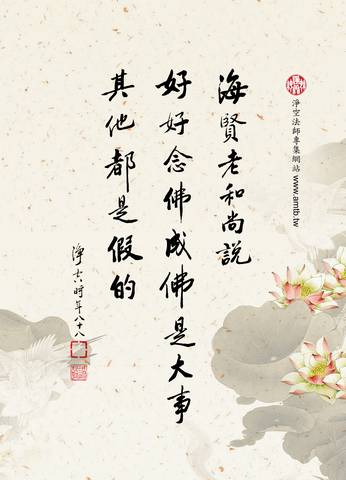 淨空法師專集網站 www.amtb.tw
海賢老和尚說
好好念佛成佛是大事
其他都是假的
淨空時年八十八